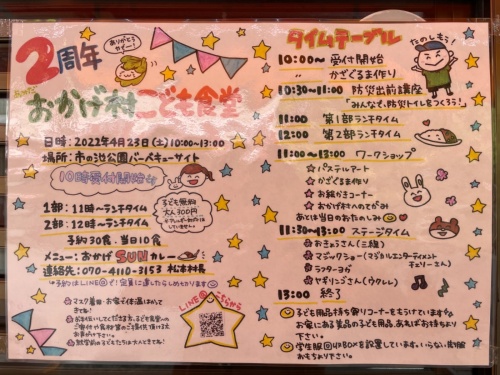 ありがとう
2周年
おかげ村こども食堂
日時：2022年4月23日(土)10:00~13:00
場所：市の池公園バーベキューサイト
10時受付開始
1部：11時~ランチタイム
2部：12時~ランチタイム
こども無料
大人300円
予約30食、当日10食
メニュー：おかげSUNカレー
連絡先：070-4110-3153 松本村長
予約はLINE@で!定員に達したらしめ切ります
マスク着用・お家で体温はかってきてね!
LINE@こちらから
就学前の子どもたちは大人ときてね!
タイムテーブル
たのしもう!
10:00~ 受付開始
〃 かざぐるま作り
10:30~11:00 防災出前講座
「みんなで、防災トイレをつくろう!」
11:00 第1部ランチタイム
12:00 第2部ランチタイム
11:00~13:00 ワークショップ
☆パステルアート
☆かざぐるま作り
☆お絵かきコーナー
☆おかげ村人へのてがみ
あとは当日のお楽しみ
11:30~13:00 ステージタイム
☆おきょうさん(三線)
☆マジックショー(マジカルエンターテイメントチェリーさん)
☆ラフターヨガ
☆ヤギリンゴさん(ウクレレ)
13:00 終了
子ども用品持ち寄りコーナーをもうけています
お家にある美品の子ども用品、あればお持ちより下さい。
学生服回収BOXを設置しています。いらない制服おもちより下さい。